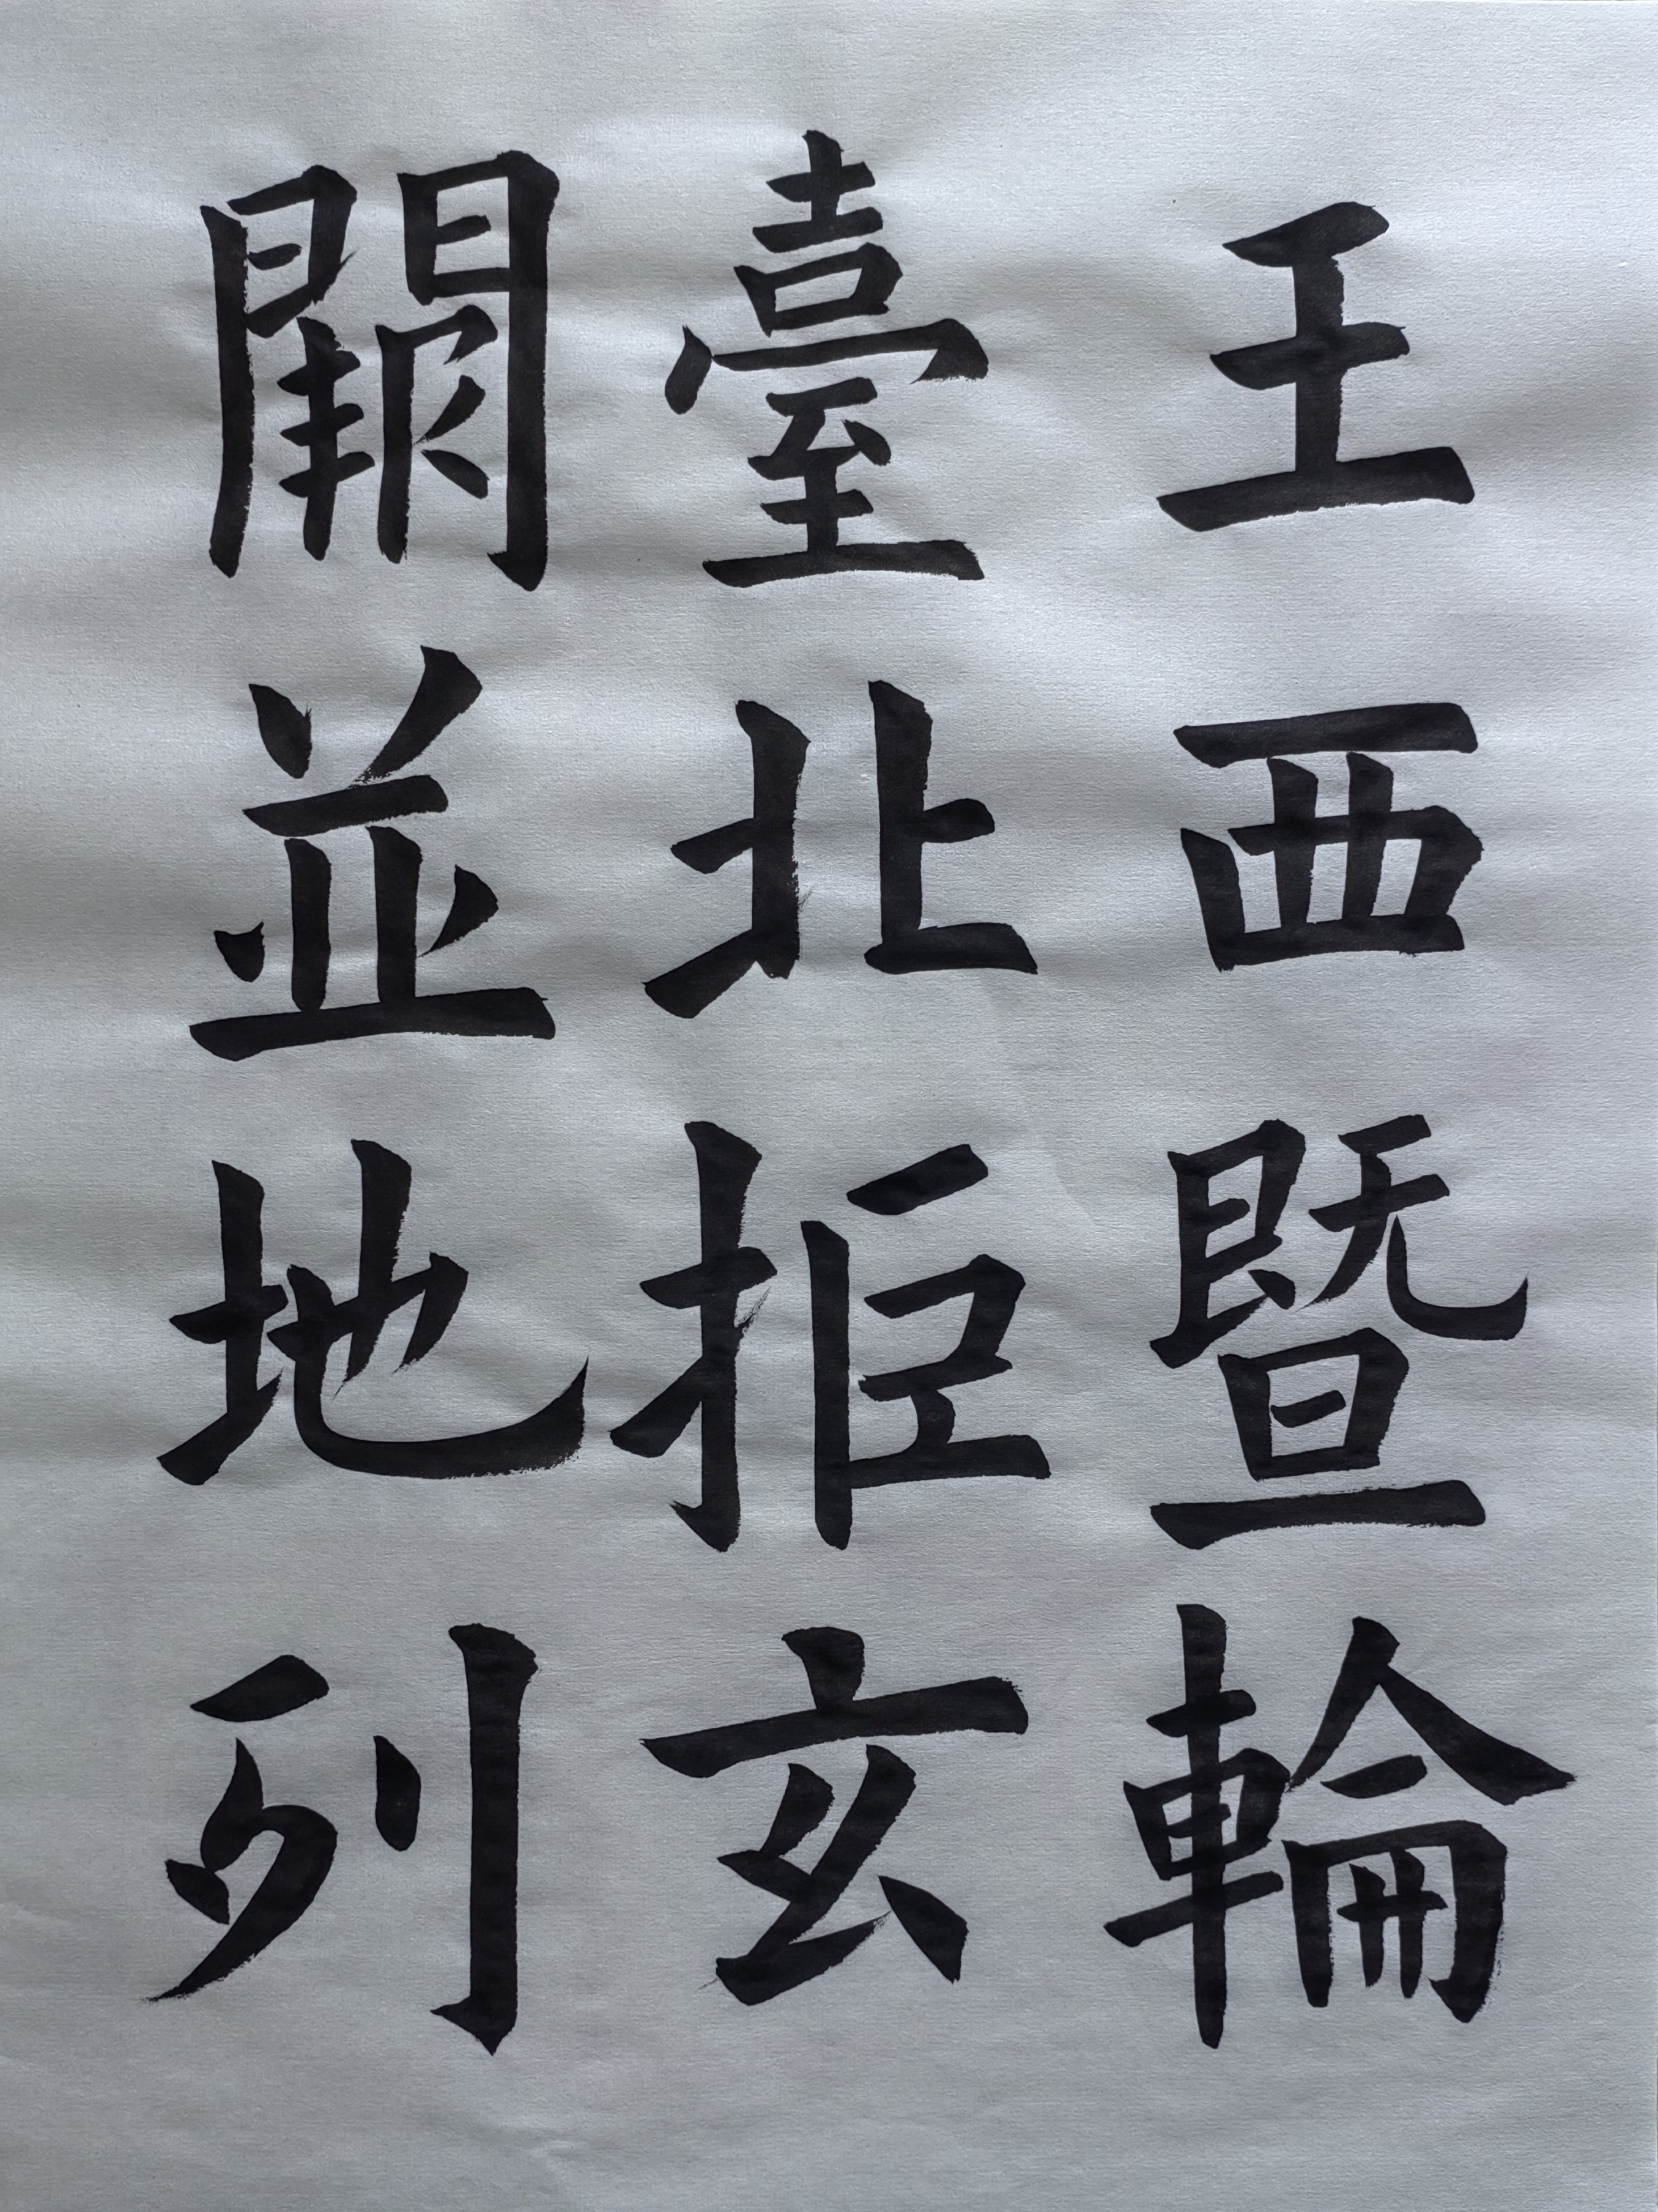 王西暨輪
臺北拒玄
闕並地列